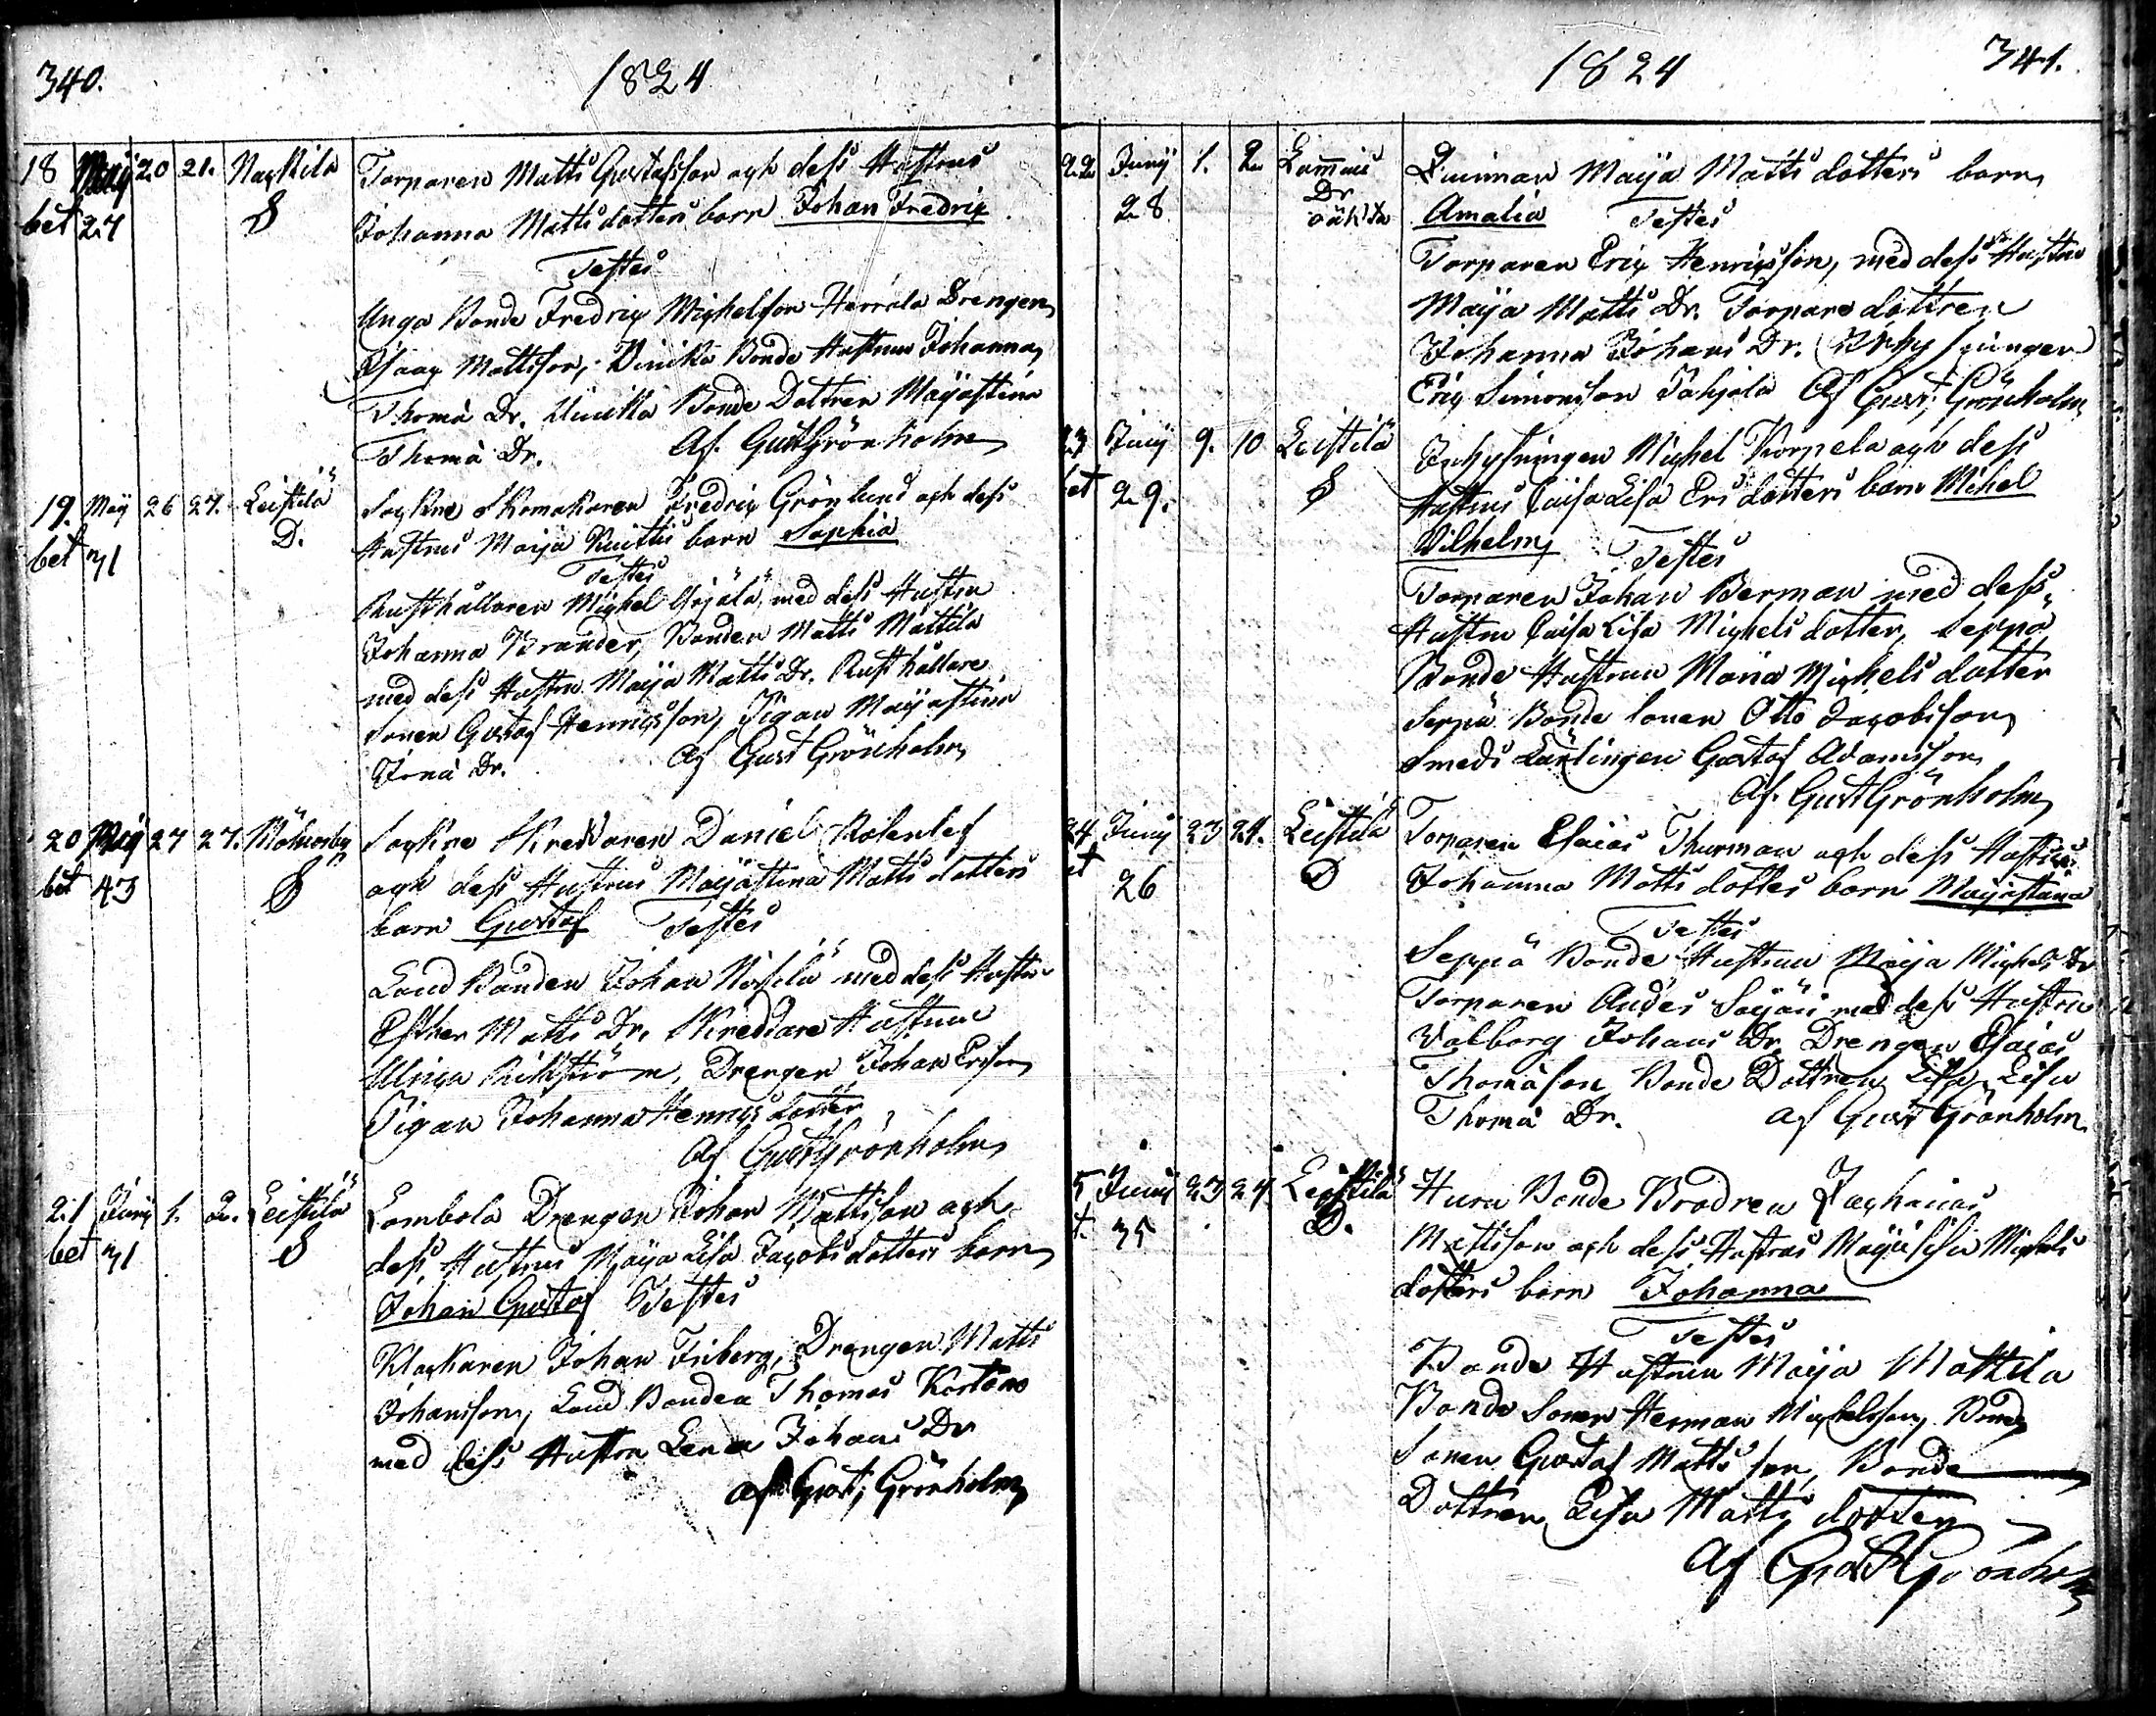 340. 1824
18 Maij 20 21. Naskila Torparen Matts Gustafsson och dess Hustrus
bet 27 S Johanna Mattsdotters barn Johan Fredric
Testes
Unga Bonde Fredric Michelsson Herrala Drengen
Isaac Mattsson, Uinika Bonde Hustrun Johanna
Thoma Dr. Uinikka Bonde Dottren Maijastina
Thoma Dr. Af. Gust Grönholm
19. Maij 26 27. Leistilä Sockne Skomakaren Fredric Grönlund och dess
bet 31 D. Hustrus Maija barn Sophia
Testes
Rusthållaren Michel Yrjälä, med dess Hustru
Johanna Brander, Bonden Matts Mattila
med dess Hustru Maija Matts Dr. Rusthållare
Sonen Gustaf Henricsson, Pigan Maijastina
Jona Dr. Af Gust Grönholm
20 Maij 27 27. Sockne Skreddaren Daniel
bet 43 S och dess Hustrus Maijastina Matts dotters
barn Gustaf Testes
Land Bonden Johan med dess Hustru
Esther Matts Dr. Skreddare Hustrun
Ulrica Drengen Johan Ersson
Pigan Johanna Henricsdotter
Af Gust Grönholm
21 Junij 1. 2. Leistilä Lambola Drengen Johan Mattsson och
bet 31 S dess Hustrus Maja Lisa Jacobsdotters barn
Johan Gustaf Testes
Klockaren Johan Friberg, Drengen Matts
Johansson, Land Bonden Thomas
med dess Hustru Lena Johans Dr
af Gust, Grönholm
1824 341.
22 Junij 1. 2 Lammais Quinnan Maija Matts dotters barn
28 Dr oäkta Amalia Testes
Torparen Eric Henricsson, med dess Hustru
Maija Matts Dr. Torpare dottren
Johanna Johans Dr. Inhysingen
Eric Simonsson Pahjala Af Gust, Grönholm
23 Junij 9. 10 Leistilä Inhysningen Michel Korpela och dess
bet 29. S Hustrus Caisa Lisa Ersdotters barn Mihel
Vilhelm Testes
Torparen Johan Berman med dess
Hustru Caisa Lisa Michelsdotter, Seppä
Bonde Hustrun Maria Michelsdotter
Seppä Bonde Sonen Otto Jacobsson
Smeds Lärlingen Gustaf Adamsson
Af. Gust Grönholm
24 Junij 23 24. Leistilä Torparen Esaias Thurman och dess Hustrus
et 26 D Johanna Matts dotters barn Maijastina
Testes
Seppä Bonde Hustrun Maija Michels Dr
Torparen Anders med dess Hustru
Valborg Johans Dr. Drengen Esaias
Thomasson Bonde Dottren Lisa Lisa
Thoma Dr. Af Gust Grönholm
5 Junij 23 24 Leistilä Huru Bonde Brodren Zachaias
t. 35 D. Mattsson och dess Hustrus Michels
dotters barn Johanna
Testes
Bonde Hustrun Maija Mattila
Bonde Sonen Herman Michelsson, Bonde
Sonen Gustaf Mattsson, Bonde
Dottren Lisa Matts dotter
Af Gust Grönholm